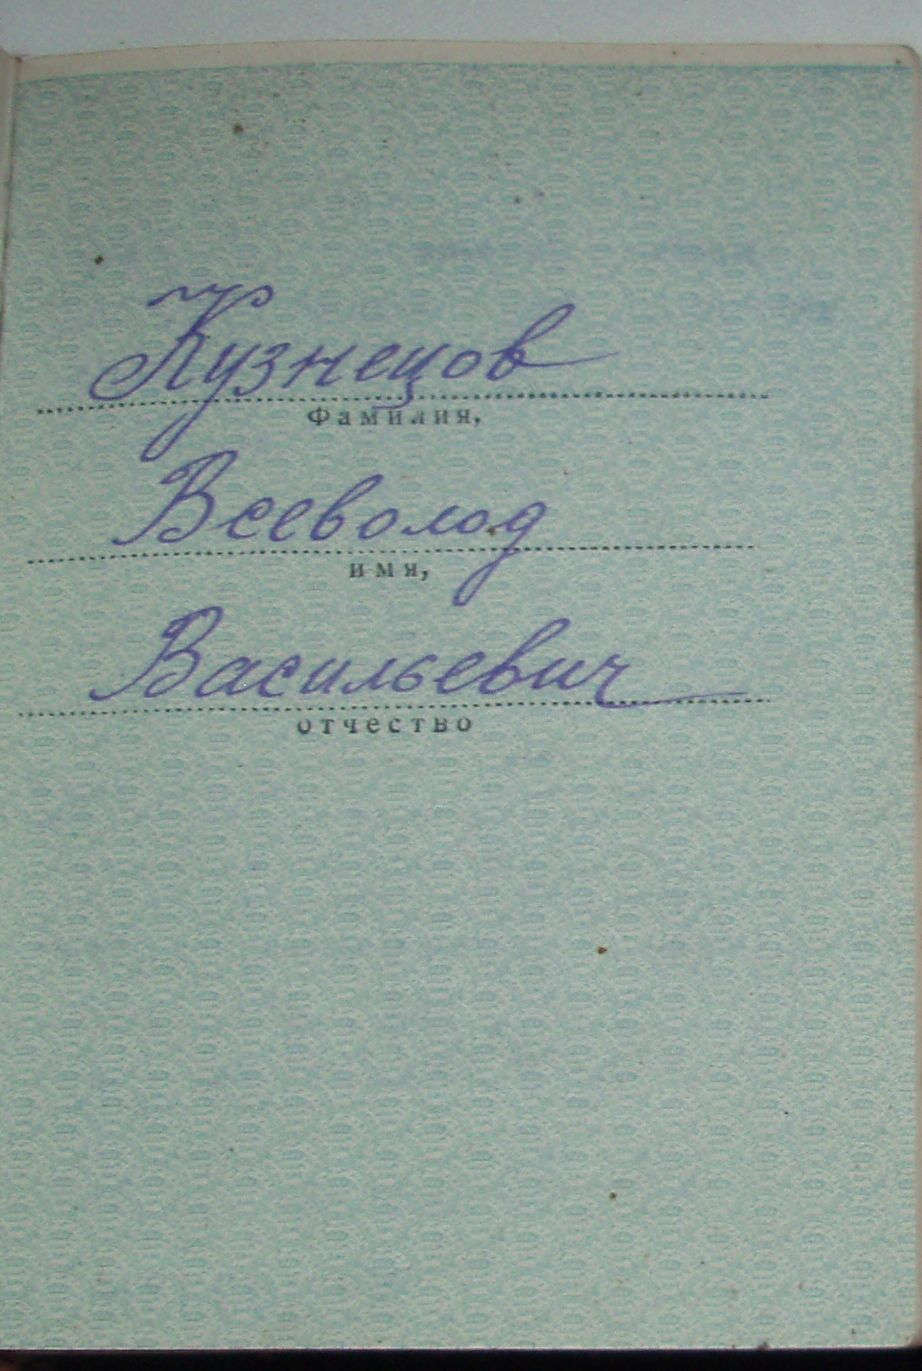 Кузнецов
Фамилия,
Всеволод
имя,
Васильевич
отчество